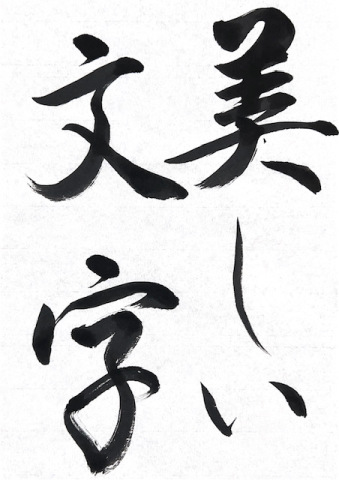 美しい
文字